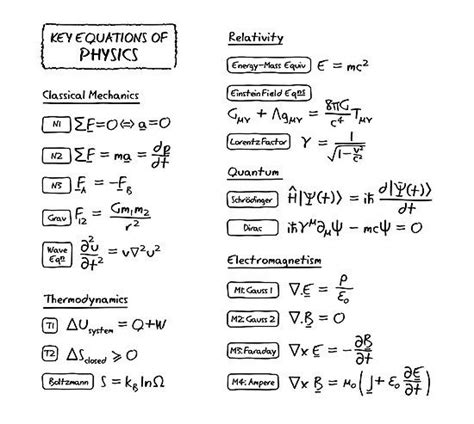 KEY EQUATIONS OF
PHYSICS
Classical Mechanics
N1 ΣF=0 ⇔ a=0
N2 ΣF = ma = dp/dt
N3 F_A = -F_B
Grav F_12 = Gm₁m₂/r²
Wave Eqⁿ ∂²u/∂t² = v∇²u²
Thermodynamics
T1 ΔU_system = Q+W
T2 ΔS_closed ⩾ 0
Boltzmann S = k_B lnΩ
Relativity
Energy-Mass Equiv E = mc²
Einstein Field Eqⁿˢ
G_μν + Λg_μν = 8πG/c⁴ T_μν
Lorentz Factor γ = 1/√(1-v²/c²)
Quantum
Schrödinger Ĥ|Ψ(t)⟩ = iħ d|Ψ(t)⟩/dt
Dirac iħγ^μ∂_μψ - mcψ = 0
Electromagnetism
M1: Gauss 1 ∇.E = ρ/ε₀
M2: Gauss 2 ∇.B = 0
M3: Faraday ∇×E = -∂B/∂t
M4: Ampere ∇×B = μ₀(J + ε₀ ∂E/∂t)